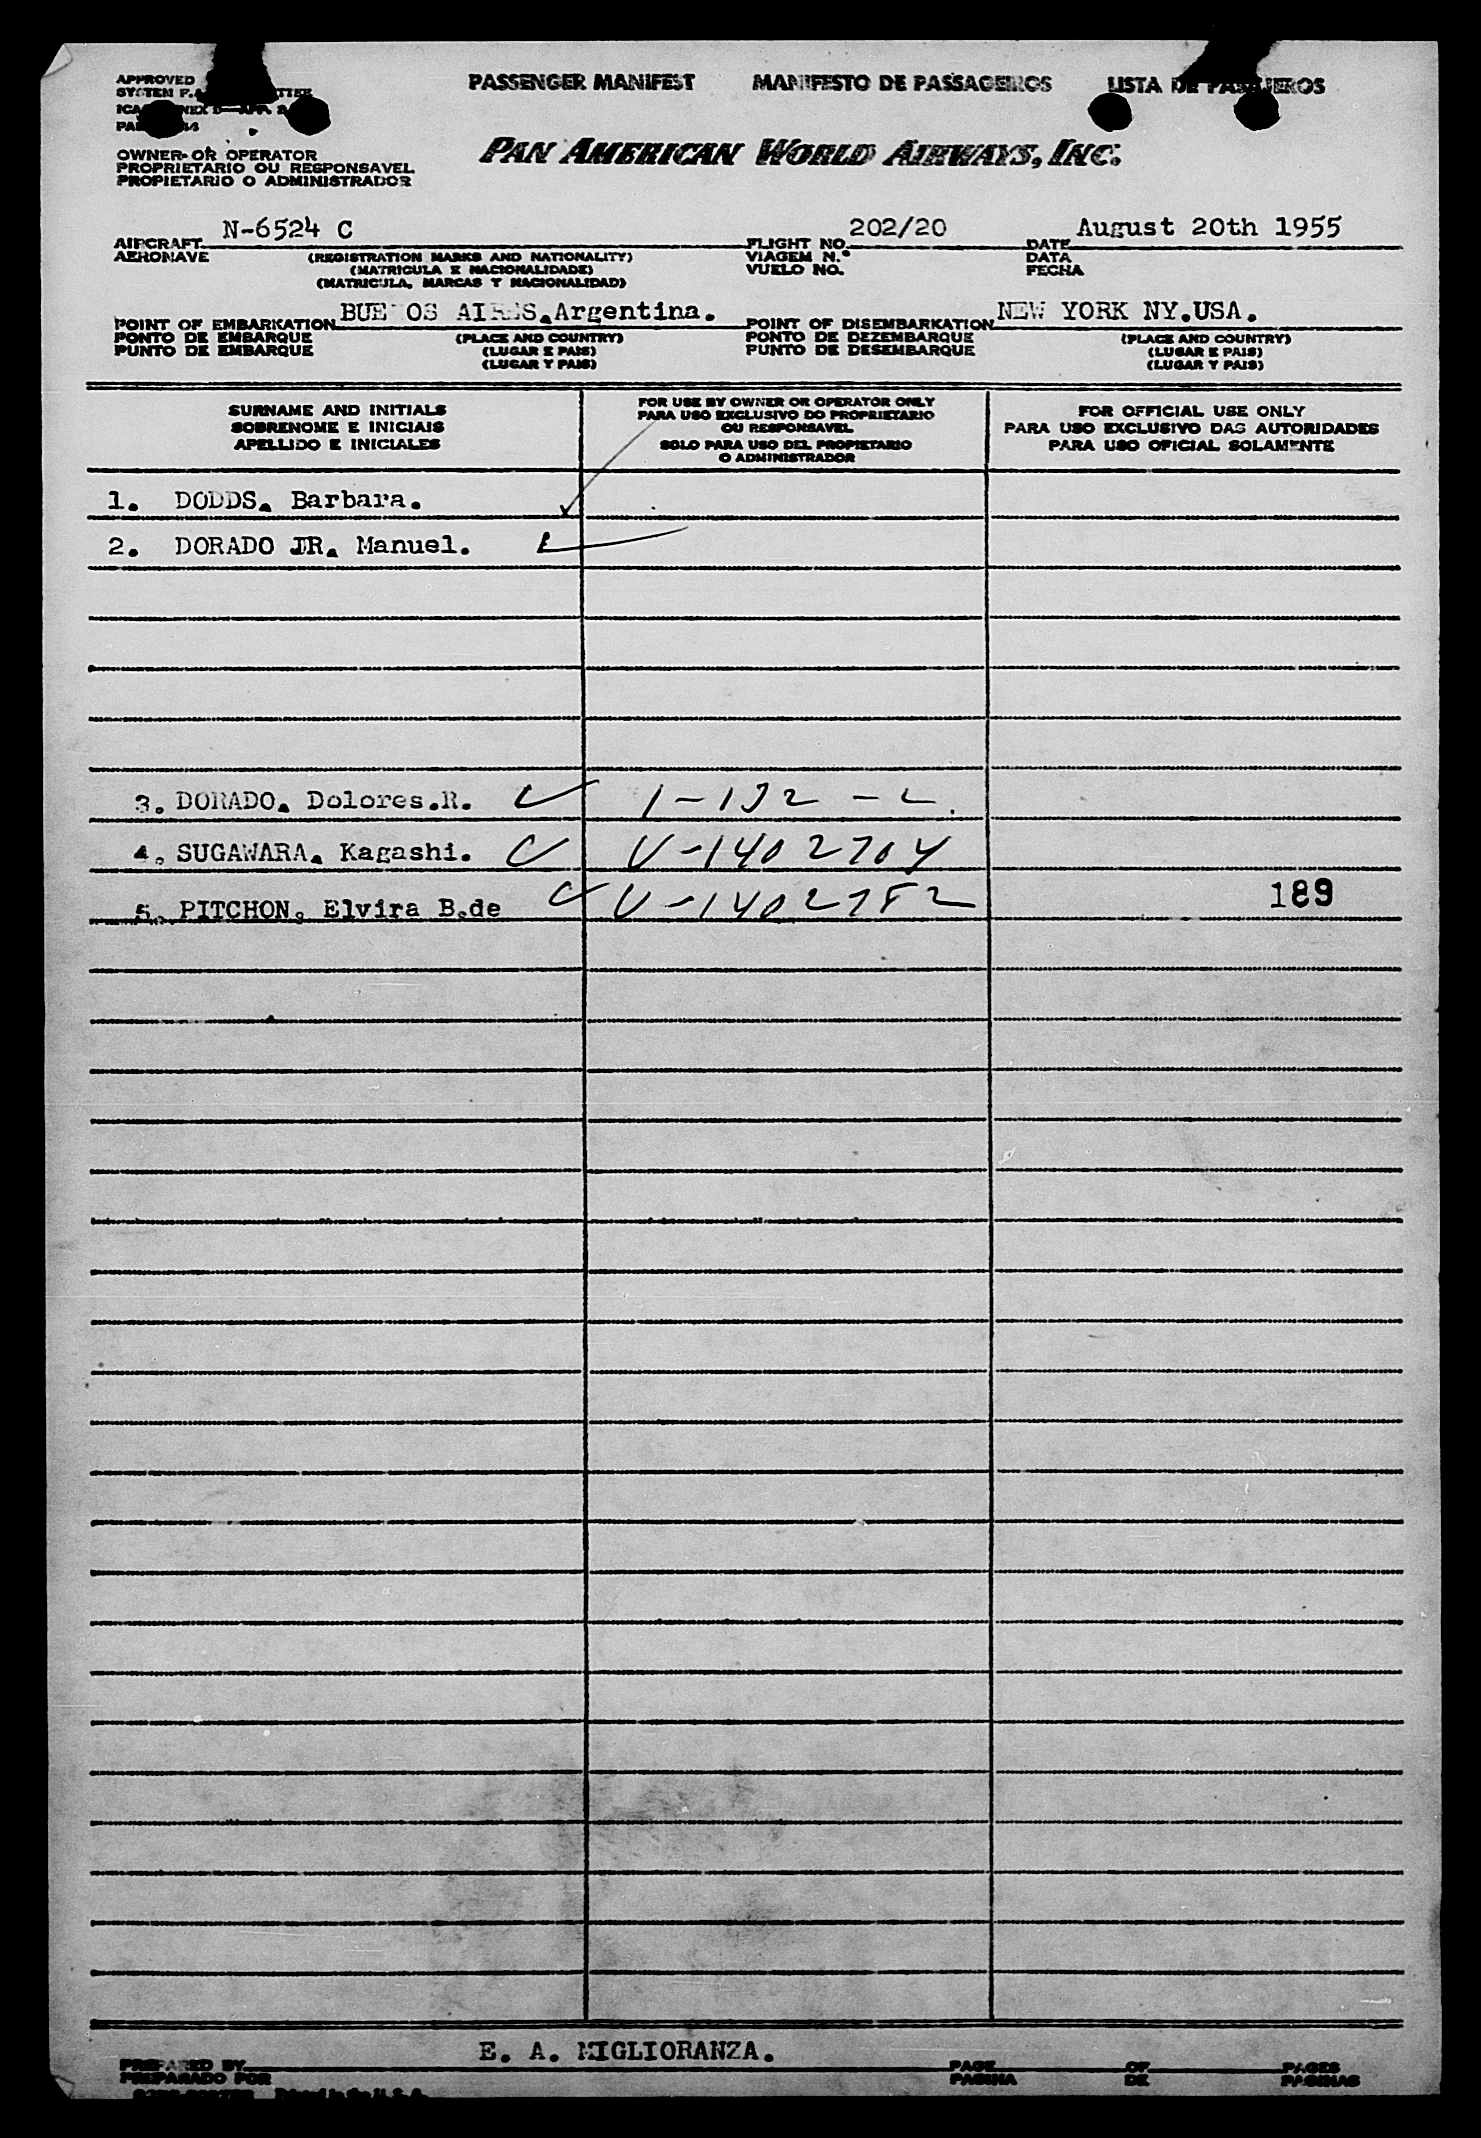 APPROVED
SYSTEM
OWNER OR OPERATOR
PROPRIETARIO OU RESPONSAVEL
PROPIETARIO O ADMINISTRADOR
PASSENGER MANIFEST MANIFESTO DE PASSAGEIROS LISTA DE PASAJEROS
PAN AMERICAN WORLD AIRWAYS, INC.
AIRCRAFT N-6524 C FLIGHT NO. 202/20 DATE August 20th 1955
AERONAVE (REGISTRATION MARKS AND NATIONALITY) VIAGEM N.° DATA
(MATRICULA E NACIONALIDADE) VUELO NO. FECHA
(MATRICULA, MARCAS Y NACIONALIDAD)
POINT OF EMBARKATION BUENOS AIRES.Argentina. POINT OF DISEMBARKATION NEW YORK NY.USA.
PONTO DE EMBARQUE (PLACE AND COUNTRY) PONTO DE DEZEMBARQUE (PLACE AND COUNTRY)
PUNTO DE EMBARQUE (LUGAR E PAIS) PUNTO DE DESEMBARQUE (LUGAR E PAIS)
(LUGAR Y PAIS) (LUGAR Y PAIS)
SURNAME AND INITIALS
SOBRENOME E INICIAIS
APELLIDO E INICIALES
FOR USE BY OWNER OR OPERATOR ONLY
PARA USO EXCLUSIVO DO PROPRIETARIO
OU RESPONSAVEL
SOLO PARA USO DEL PROPIETARIO
O ADMINISTRADOR
FOR OFFICIAL USE ONLY
PARA USO EXCLUSIVO DAS AUTORIDADES
PARA USO OFICIAL SOLAMENTE
1. DODDS. Barbara.
2. DORADO JR. Manuel.
3. DORADO. Dolores.R. 1-132-L.
4. SUGAWARA. Kagashi. V-1402704
5. PITCHON. Elvira B.de V-1402782 189
E. A. MIGLIORANZA.
PREPARED BY PAGE OF PAGES
PREPARADO POR PAGINA DE PAGINAS
Printed in the U. S. A.